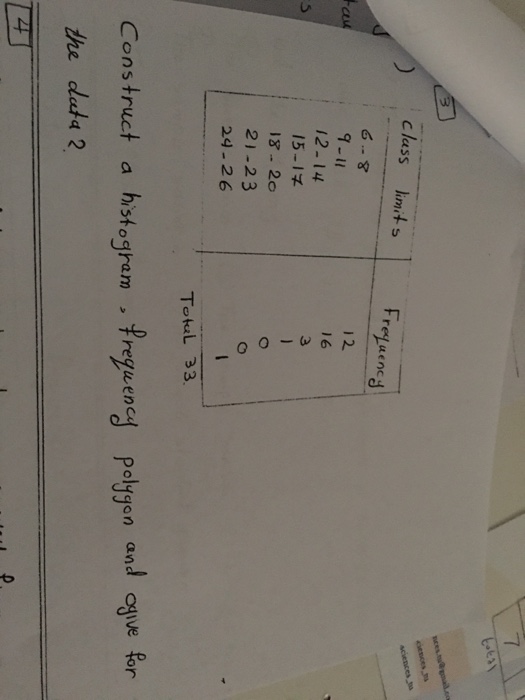 3
Class limits Frequency
6-8 12
9-11 16
12-14 3
15-17 1
18-20 0
21-23 0
24-26 1
Total 33
Construct a histogram, frequency polygon and ogive for
the data?
4
7
total